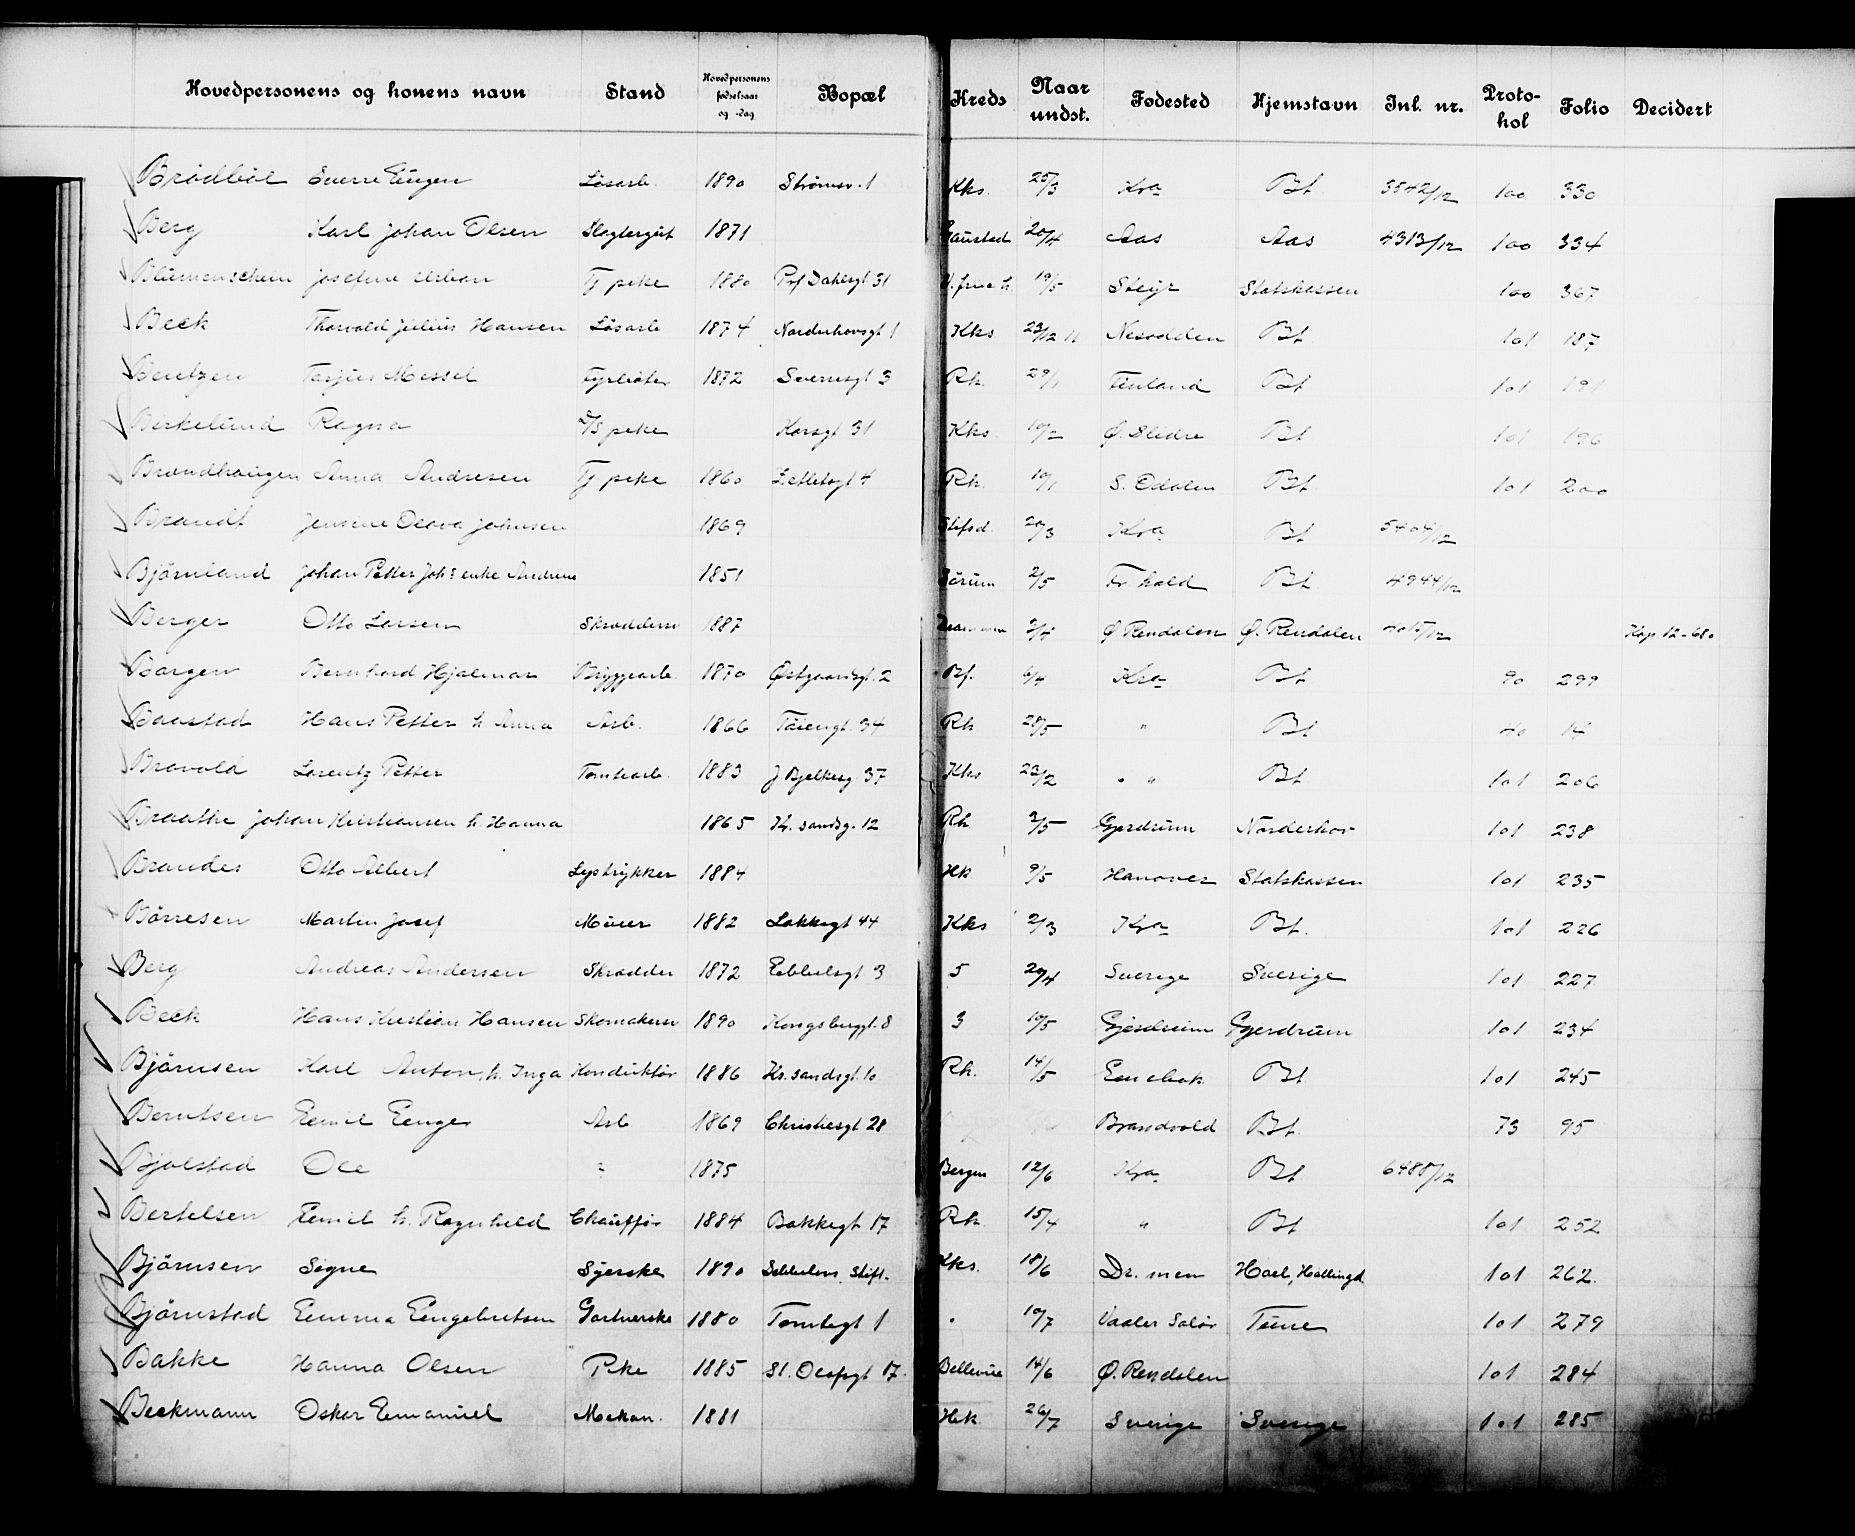 Hovedpersonens og konens navn Stand Hovedpersonens fødselsaar og -dag Bopæl Kreds Naar undst. Fødested Hjemstavn Inl. nr. Protokol Folio Decidert
Brødbøl Sverre Eugen Løsarb. 1890 Strømsv. 1 Kks. 25/3 Kra Bt 3542/12 100 330
Berg Karl Johan Olsen Slagtergut 1871 Gaustad 20/4 Aas Aas 4313/12 100 334
Blumenschein Josefine Urban Tj pike 1880 Prof Dahlsgt 31 V. frue h. 19/5 Steyr Statskassen 100 367
Beck Thorvald Julius Hansen Løsarb 1874 Norderhovsgt 1 Kks 23/12 11 Nesodden Bt 101 187
Bentzen Tarjus Messel Fyrbøter 1872 Sverresgt 3 Rh. 29/1 Finland Bt 101 191
Birkelund Ragna pike Korsgt 31 Kks. 10/2 Ø. Slidre Bt 101 196
Brændhaugen Anna Andresen Tj pike 1860 4 Rh. 10/1 S. Odalen Bt. 101 200
Brandt Jensine Olava Johnsen 1869 20/3 Kra Bt 5404/12
Bjørnland Johan Petter Joh.s enke Andrine 1851 Sørum 2/5 Fr hald Bt 4944/12
Berger Otto Larsen Skræddersv 1887 Drammen 2/4 Ø Rendalen Ø. Rendalen 4015/12 Kop 12-680
Borgen Bernhard Hjalmar Bryggearb. 1870 Østgaardsgt. 2 Bf. 6/4 Kra Bt 90 299
Baastad Hans Petter h Anna Arb. 1866 Tøiengt. 34 Rh 28/5 " Bt 40 14
Bravold Lorentz Petter Tomtearb. 1883 J Bjelkesg. 37 Kks 23/2 " " Bt 101 206
Braathe Johan Kristiansen h. Hanna 1865 Kr. sandsg. 12 Rh 3/5 Gjerdrum Norderhov 101 238
Brandes Otto Albert Lystrykker 1884 Hk 9/5 Hanover Statskassen 101 235
Børresen Martin Josef Murer 1882 Lakkegt 44 Kks 2/3 Kra Bt. 101 226
Berg Andreas Andersen Skrædder 1872 Ebbelsgt 3 5 29/4 Sverige Sverige 101 227
Beck Hans Kristian Hansen Skomakersv 1890 Kongsberggt. 8 3 10/5 Gjerdrum Gjerdrum 101 234
Bjørnsen Karl Anton, h. Inga Konduktør 1886 Kr. sandsgt. 10 Rh. 14/5 Enebak Bt 101 245
Berntsen Emil Enger Arb 1869 Christiesgt 28 Brandvold Bt. 73 95
Bjølstad Ole ? 1875 Bergen 12/6 Kra Bt 6488/12
Bertelsen Emil h. Ragnhild Chauffør 1884 Bakkegt 17 Rh. 15/4 " Bt 101 252
Bjørnsen Signe Syerske 1890 Stift. Kks. 18/6 Dr. men Hoel, Hallingd 101 262.
Bjørnstad Emma Engebretsen Gartnerske 1880 Tomtegt 1 " 10/7 Vaaler Solør Tune 101 279
Bakke Hanna Olsen Pike 1885 St. Olafsgt 17. Bellevue 14/6 Ø. Rendalen 101 284
Beckmann Oskar Emanuel Mekan. 1881 Hk. 26/7 Sverige Sverige 101 285